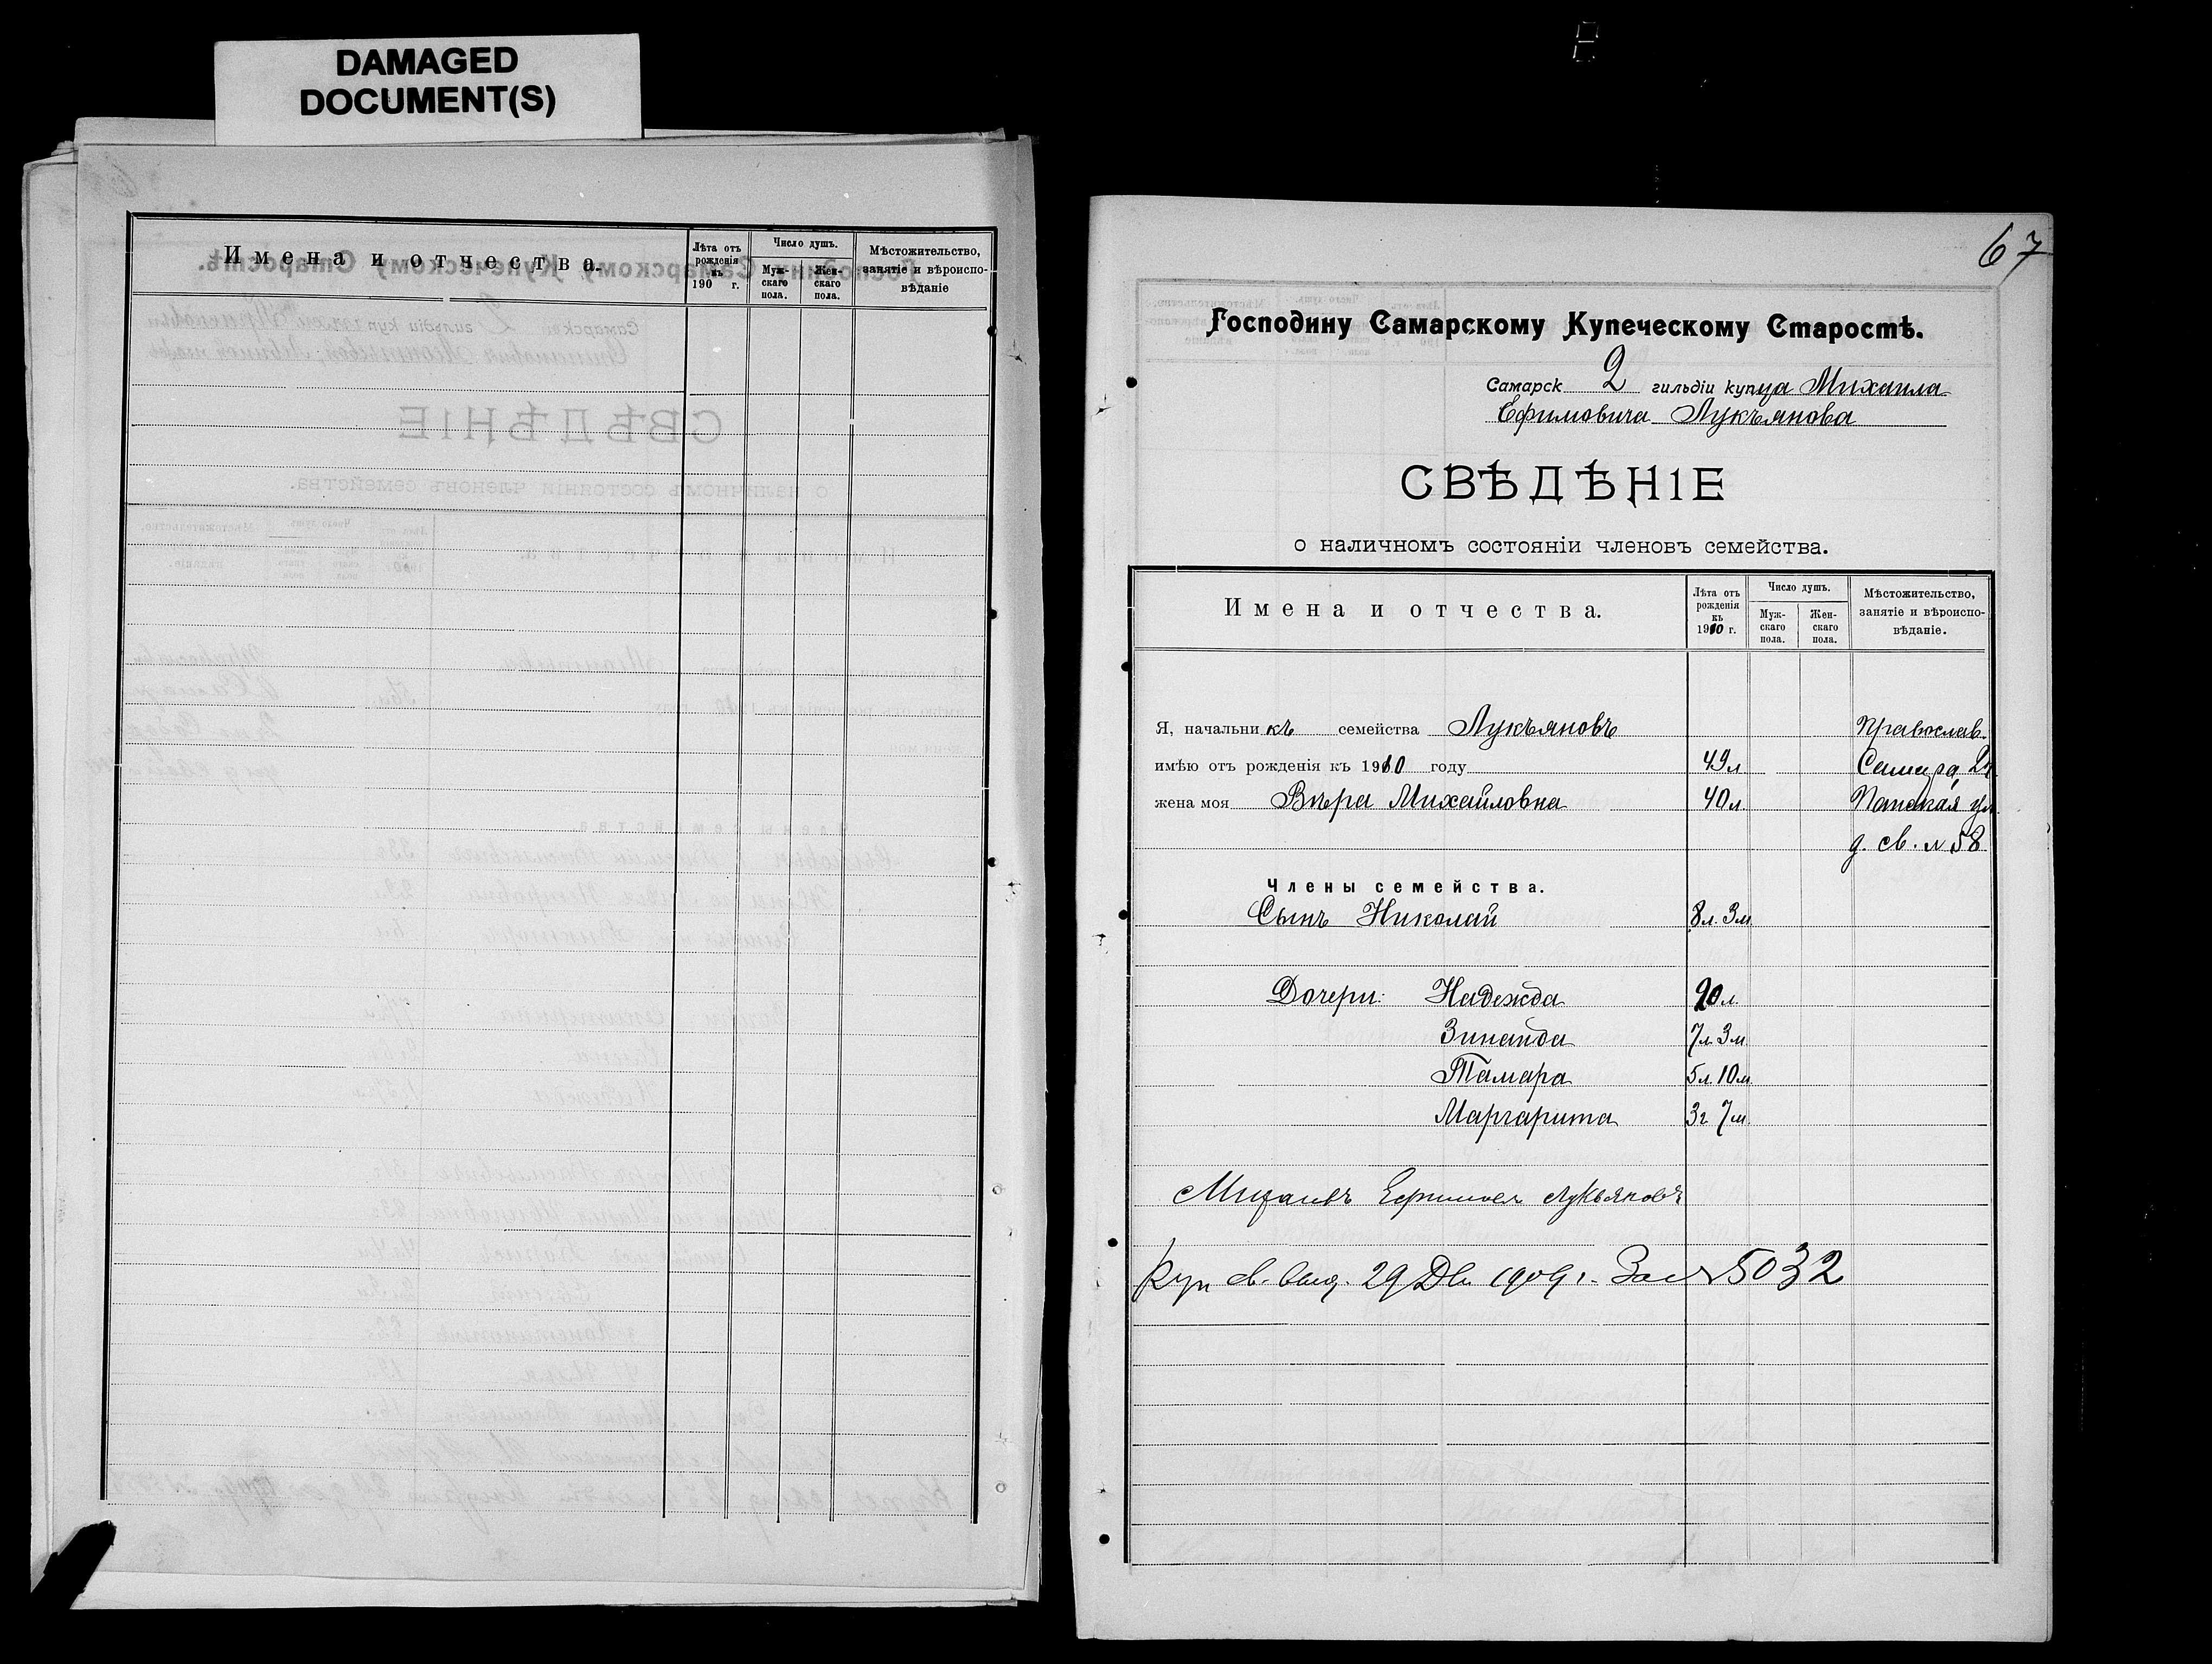 DAMAGED
DOCUMENT(S)
Имена и отчества.
Лѣта отъ рожденія къ 190 г.
Число душъ.
Муж-
скаго
пола.
Жен-
скаго
пола.
Мѣстожительство,
занятіе и вѣроиспо-
вѣданіе
67
Господину Самарскому Купеческому Старостѣ.
Самарск 2 гильдіи купца Михаила
Ефимовича Лукъянова
СВѢДѢНІЕ
о наличномъ состояніи членовъ семейства.
Имена и отчества.
Лѣта отъ
рожденія
къ
1910 г.
Число душъ.
Муж-
скаго
пола.
Жен-
скаго
пола.
Мѣстожительство,
занятіе и вѣроиспо-
вѣданіе.
Я, начальникъ семейства Лукъяновъ Православ.
имѣю отъ рожденія къ 1910 году 49л Самара, 2ч
жена моя Вѣра Михайловна 40л Панская ул
д. св. № 58
Члены семейства.
Сынъ Николай 8л. 3м
Дочери: Надежда 20л.
Зинаида 7л. 3м
Тамара 5л. 10м.
Маргарита 3г 7м.
Михаилъ Ефимовъ Лукьяновъ
Куп св. выд. 29 Дек 1909 г. За № 5032